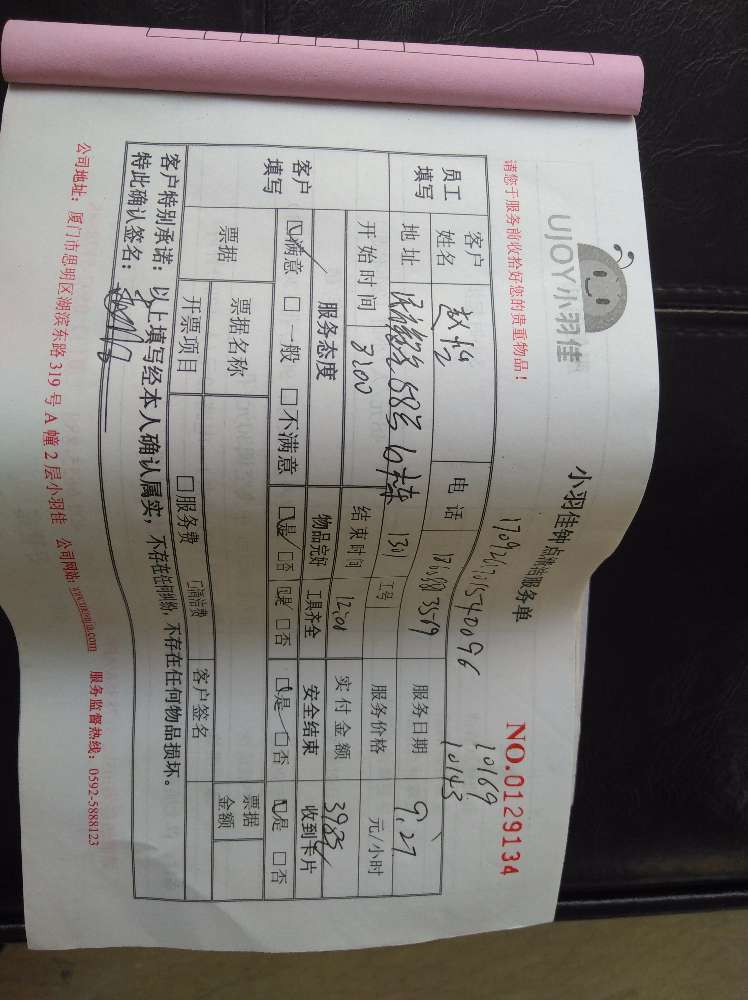 UJOY小羽佳
小羽佳钟点清洁服务单
NO.0129134
请您于服务前收拾好您的贵重物品！
1709201701540096
10169
10143
员工填写
客户姓名
赵
电话
服务日期
9.27
地址
58号
1301
工号
服务价格
元/小时
开始时间
结束时间
12:00
实付金额
客户填写
服务态度
物品完好
工具齐全
安全结束
收到卡片
满意 □ 一般 □ 不满意
是 □否
是 □否
是 □否
是 □否
票据
票据名称
票据金额
开票项目
□服务费
□清洁费
客户签名
客户特别承诺：以上填写经本人确认属实，不存在任何纠纷，不存在任何物品损坏。
特此确认签名：
公司地址：厦门市思明区湖滨东路 319 号 A 幢 2 层小羽佳 公司网站: www.ukongjia.com 服务监督热线：0592-5888123